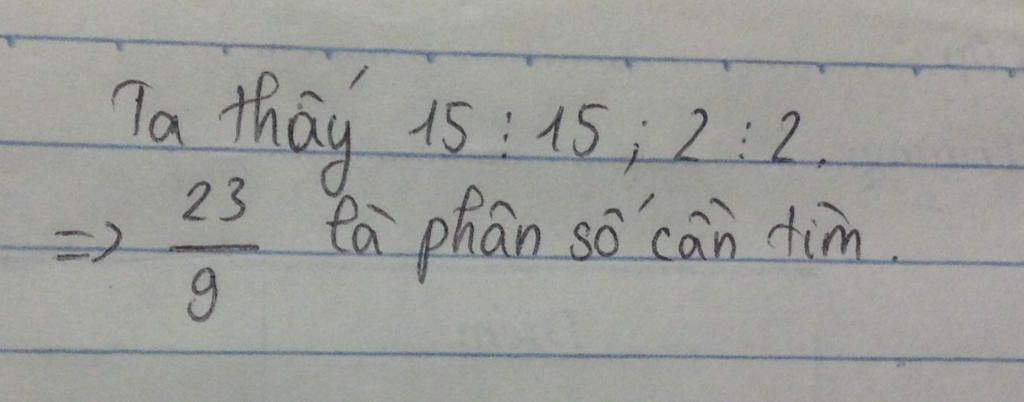 Ta thấy 15 : 15 ; 2 : 2.
=> 23/9 là phân số cần tìm.